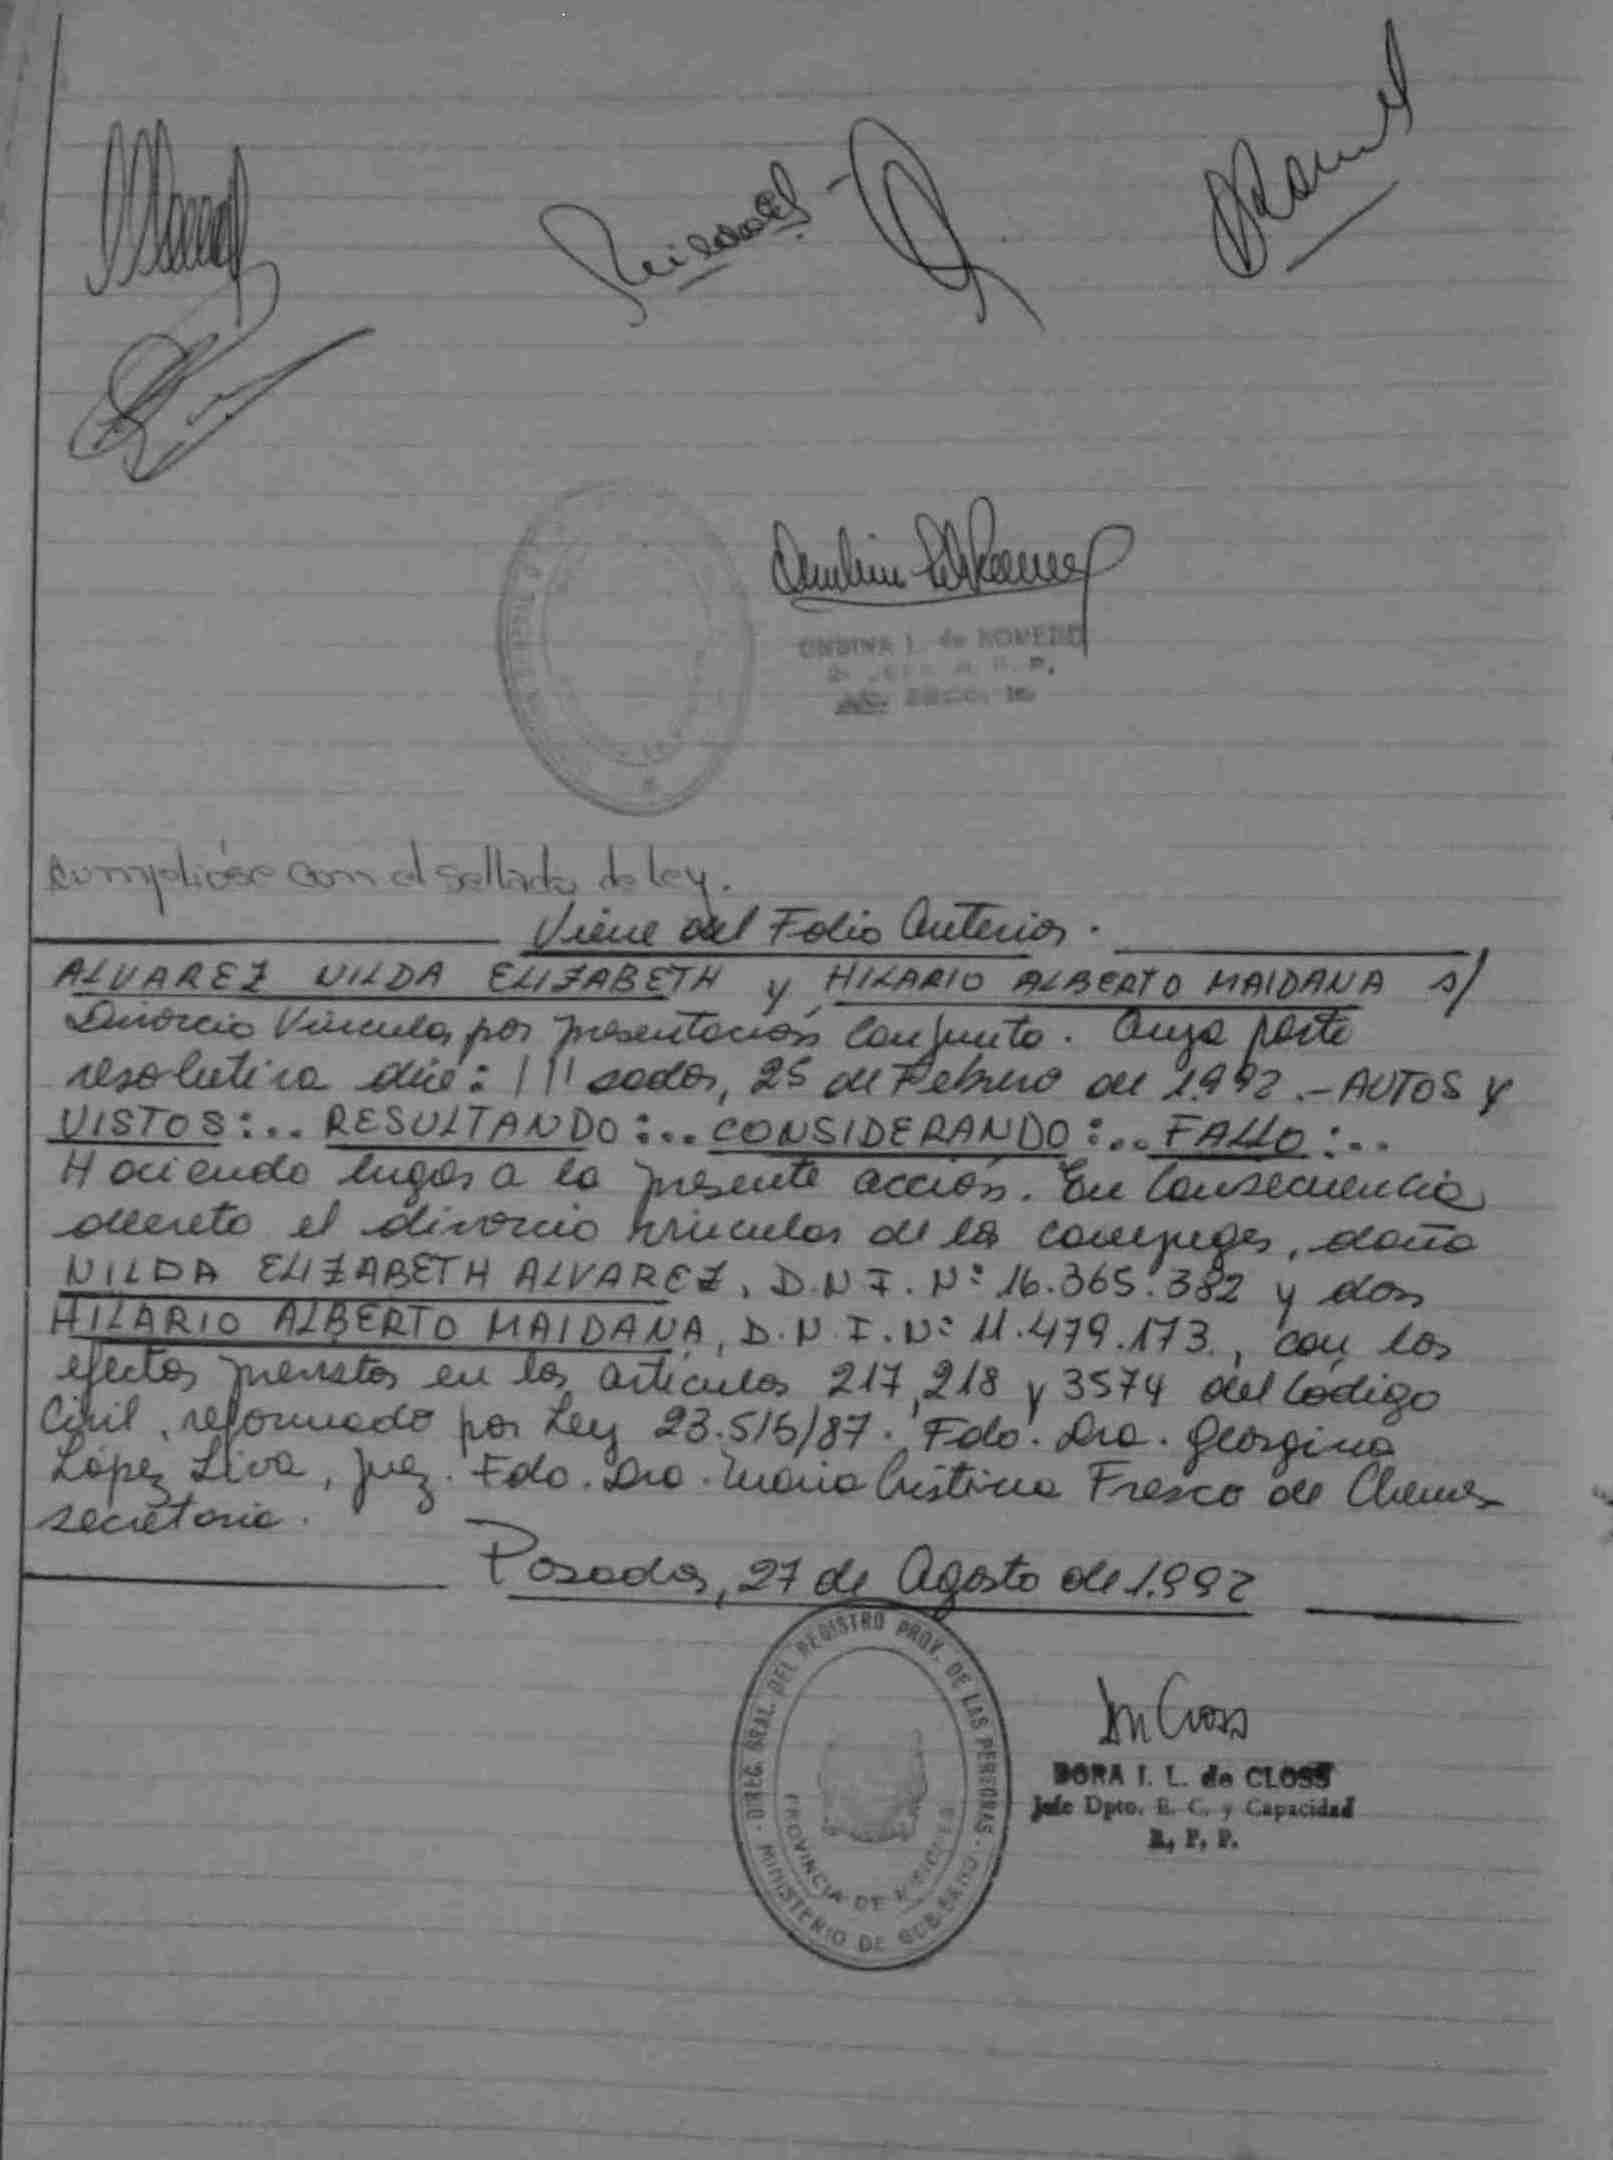 ONDINA I. de ROMERO
Cumplióse con el sellado de ley.
Viene del Folio Anterior.
ALVAREZ NILDA ELIZABETH y HILARIO ALBERTO MAIDANA s/
Divorcio Vincular por presentación Conjunta. Cuya parte
resolutiva dice: ///sadas, 25 de Febrero de 1.992.- AUTOS Y
VISTOS:.. RESULTANDO:... CONSIDERANDO:.. FALLO:..
Haciendo lugar a la presente acción. En Consecuencia
decreto el divorcio vincular de los conyuges, doña
NILDA ELIZABETH ALVAREZ, D.N.I. Nº 16.365.382 y don
HILARIO ALBERTO MAIDANA, D.N.I. Nº 11.479.173., con los
efectos previstos en los artículos 217, 218 y 3574 del Código
Civil, reformado por Ley 23.515/87. Fdo. Dra. Georgina
López Liva, Juez. Fdo. Dra. María Cristina Fresco de Chemes
secretaria.
Posadas, 27 de Agosto de 1.992
DIREC. GRAL. DEL REGISTRO PROV. DE LAS PERSONAS
PROVINCIA DE MISIONES
MINISTERIO DE GOBIERNO
DORA I. L. de CLOSS
Jefe Dpto. E. C. y Capacidad
R. P. P.